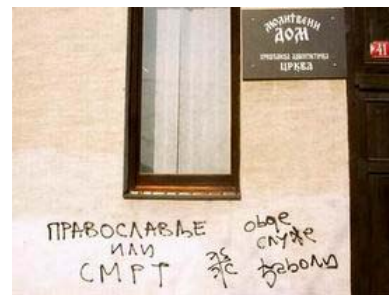 МОЛИТВЕНИ
ДОМ
ХРИШЋАНСКА АДВЕНТИСТИЧКА
ЦРКВА
41
ПРАВОСЛАВЉЕ
ИЛИ
СМРТ
овде
служе
ђаволи